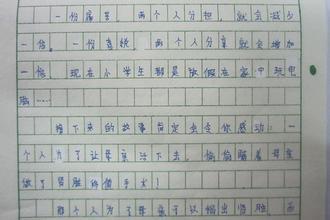 一份痛苦。两个人分担,就会减少
一倍。一份喜悦。两个人分享就会增加
一倍。现在小学生都是放假在家中玩电
脑……
接下来的故事肯定会令你感动:一
个人为了让母亲活下去。偷偷瞒着母亲
做了肾脏移植手术!
那个人为了母亲可以捐出肾脏。而